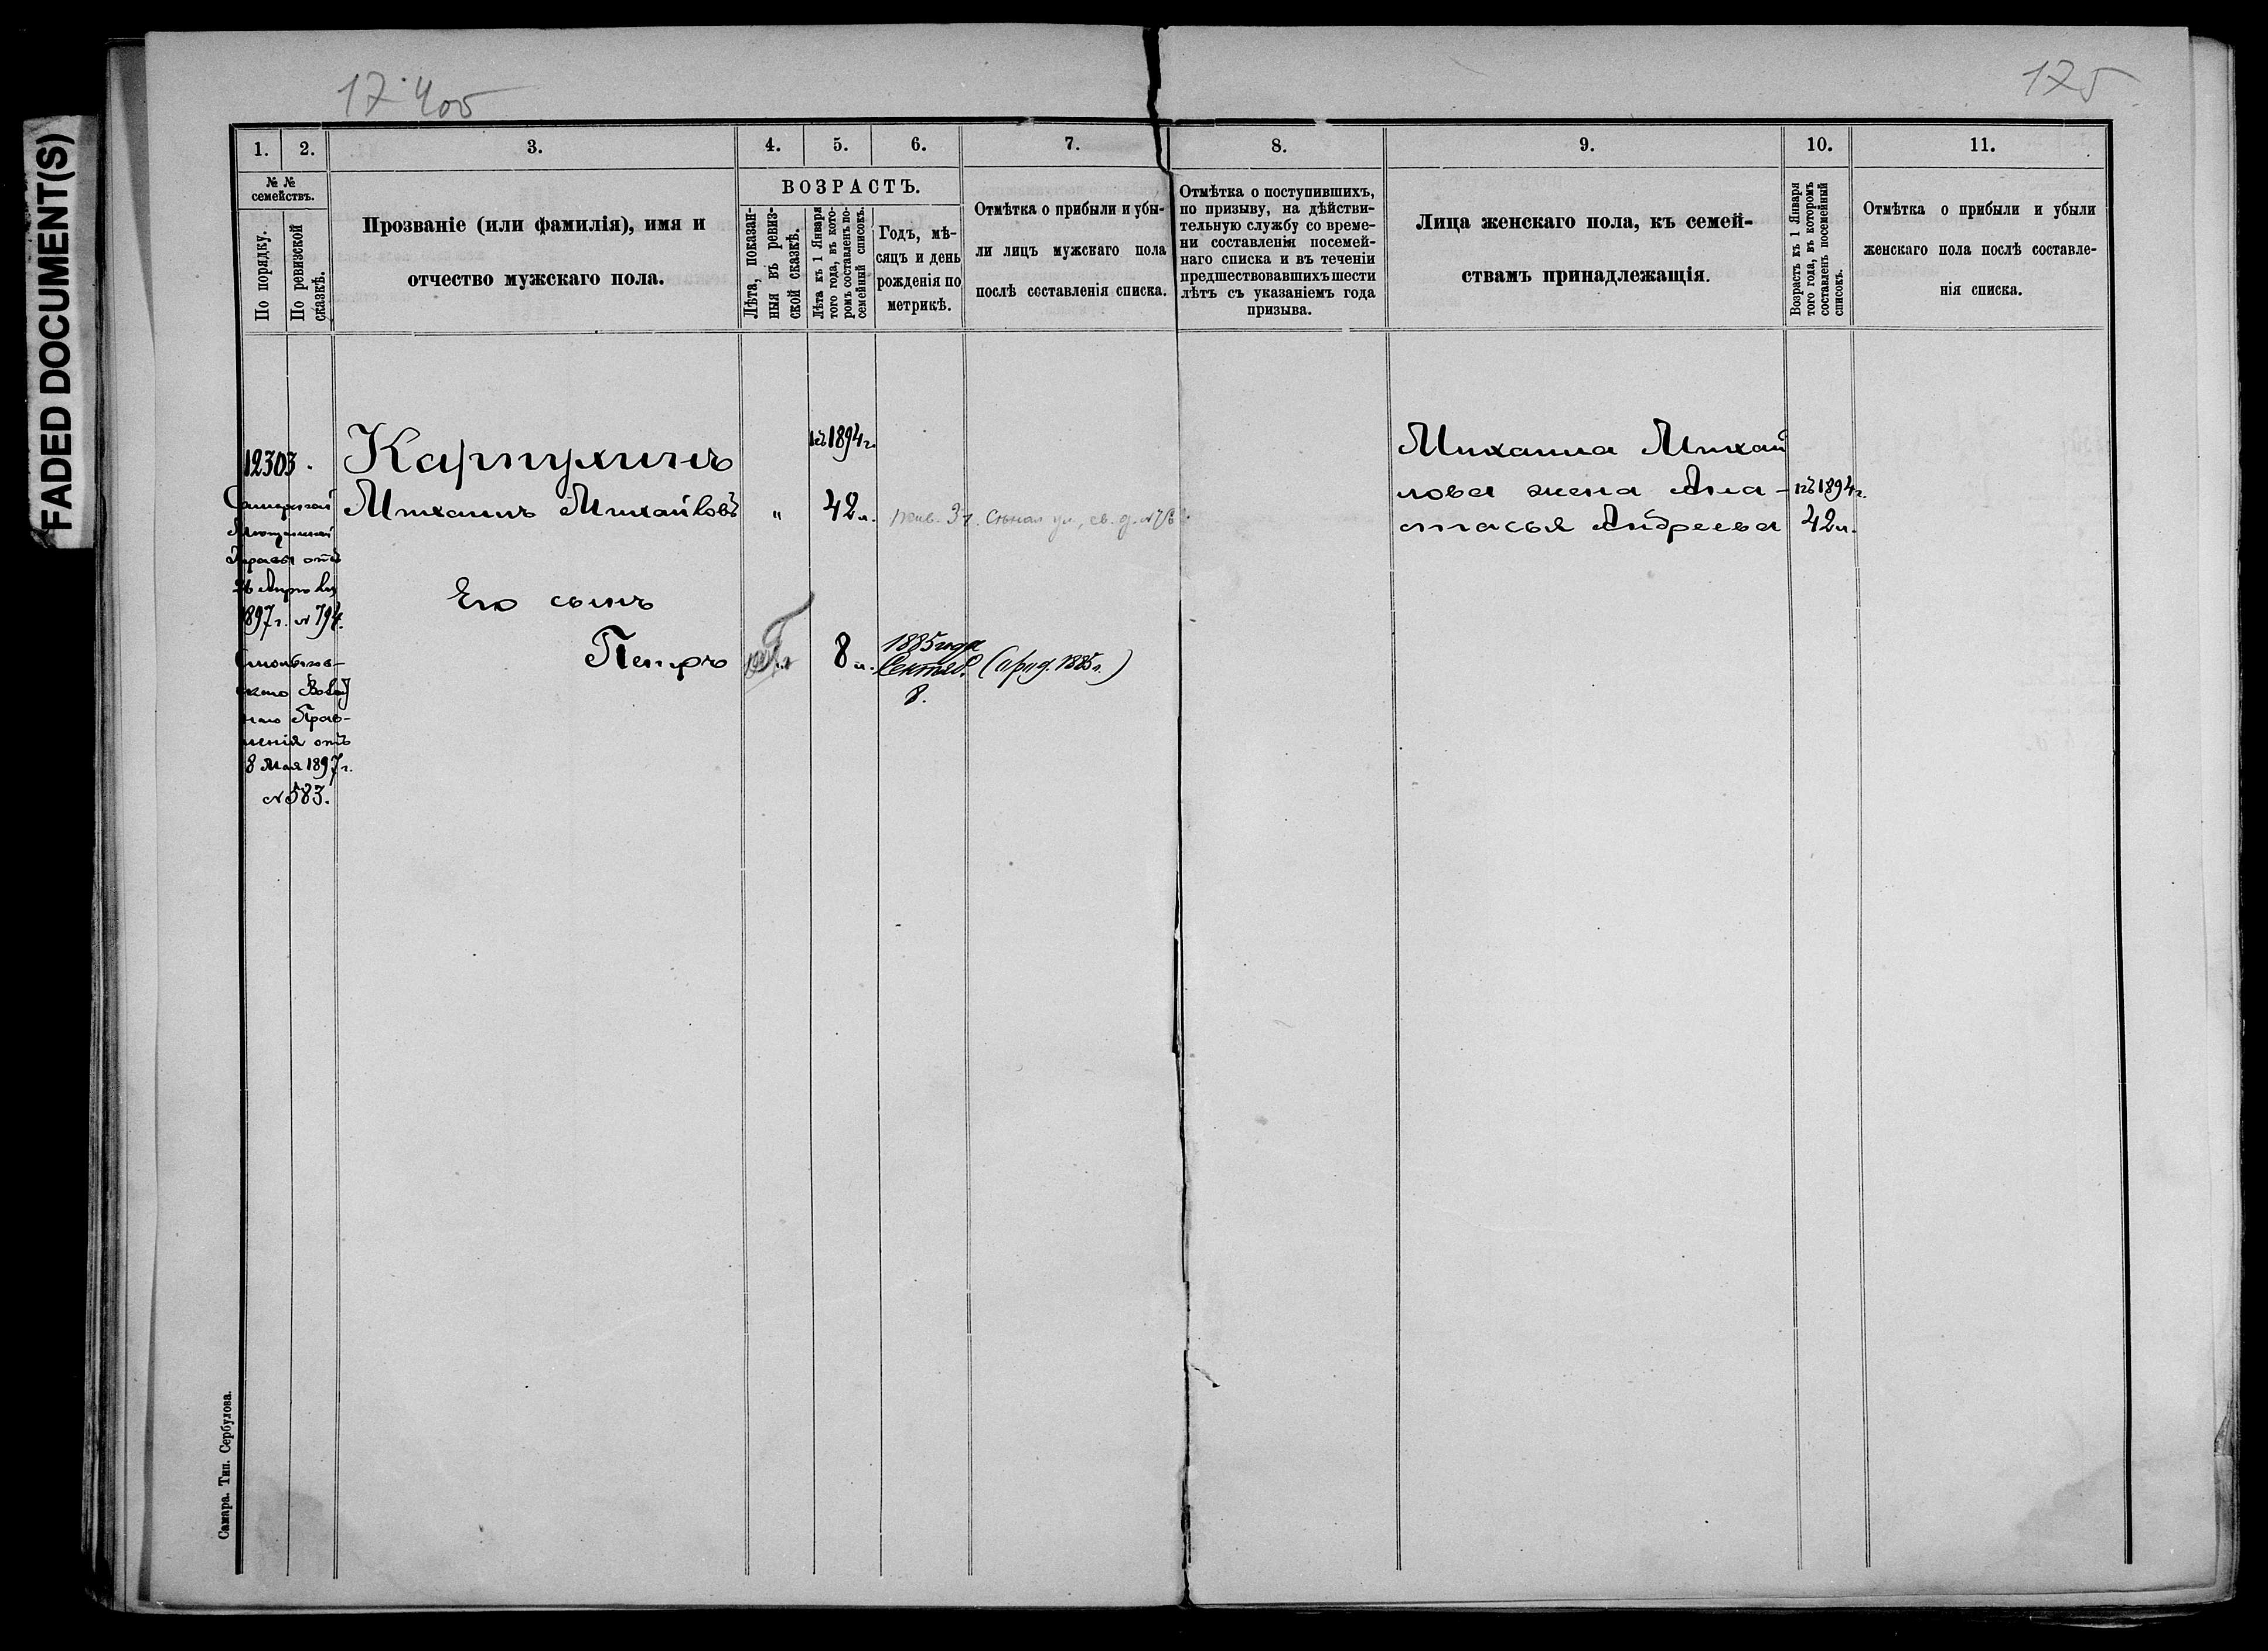 FADED DOCUMENT(S)
17400
175
1.
2.
3.
4.
5.
6.
7.
8.
9.
10.
11.
№ №
семействъ.
По порядку.
По ревизской
сказкѣ.
Прозваніе (или фамилія), имя и
отчество мужскаго пола.
ВОЗРАСТЪ.
Лѣта, показан-
ныя въ ревиз-
ской сказкѣ.
Лѣта къ 1 Января
того года, въ кото-
ромъ составленъ по-
семейный списокъ.
Годъ, мѣ-
сяцъ и день
рожденія по
метрикѣ.
Отмѣтка о прибыли и убы-
ли лицъ мужскаго пола
послѣ составленія списка.
Отмѣтка о поступившихъ,
по призыву, на дѣйстви-
тельную службу со време-
ни составленія посемей-
наго списка и въ теченіи
предшествовавшихъ шести
лѣтъ съ указаніемъ года
призыва.
Лица женскаго пола, къ семей-
ствамъ принадлежащія.
Возрастъ къ 1 Января
того года, въ которомъ
составленъ посемейный
списокъ.
Отмѣтка о прибыли и убыли
женскаго пола послѣ составле-
нія списка.
12303.
Самарской
Мѣщанской
Управы отъ
Апрѣля
1897 г. № 794.
скаго Волост
наго Прав-
ленія отъ
8 Мая 1897 г.
№ 583.
Картухинъ
Михаилъ Михайловъ
Его сынъ
Петръ
къ 1894 г.
„
42 л.
3 ч. Сѣнная ул., св. д.
8 л.
1885 года
Сентяб.
8.
(а род. 1885 г.)
Михаила Михай
лова жена Ана-
стасья Андреева
къ 1894 г.
42 л.
Самара. Тип. Сербулова.